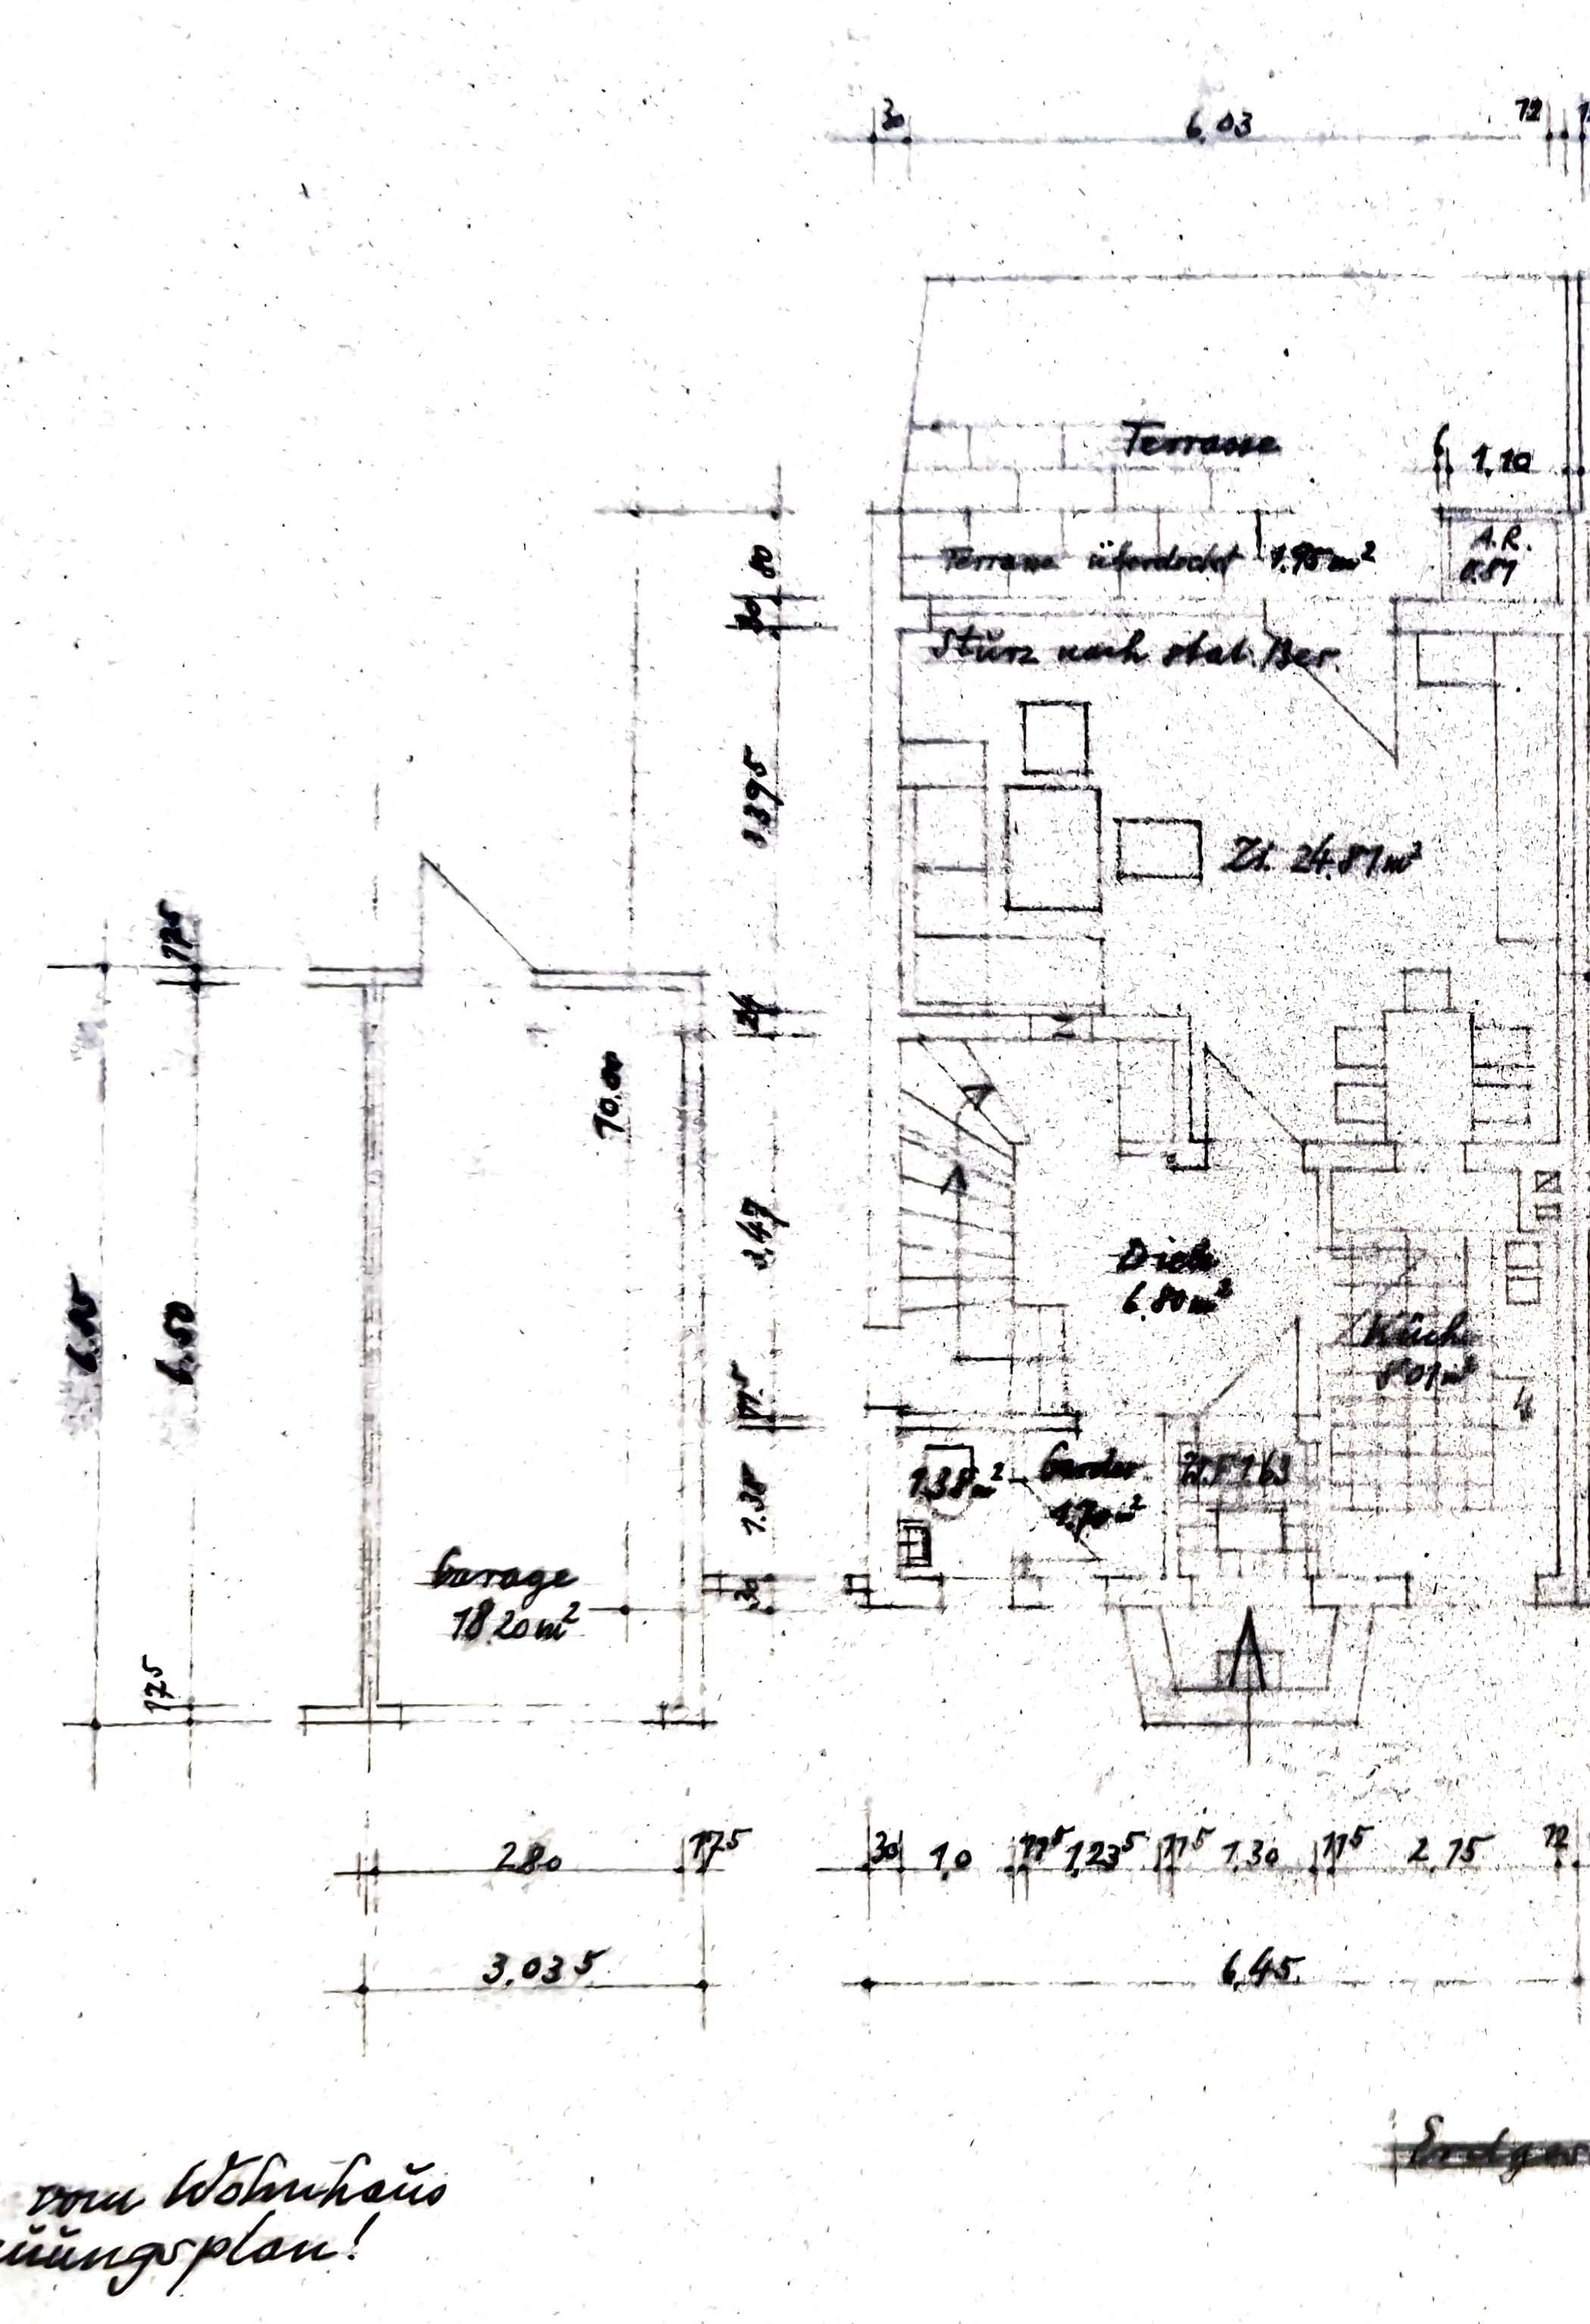 30
6.03
12
Terrasse
6
1.10
Terrasse überdeckt
1.95 m²
A.R.
0.87
Sturz nach stat. Ber.
80
30
24
Zi. 24.81 m²
17.5
70.00
3.47
Diele
6.80 m²
Küch
8.01 m²
6.50
11.5
1.38 m²
Garder.
1.70 m²
W.F. 1.63
1.38
30
Garage
18.20 m²
17.5
2.80
17.5
30
1.0
11.5
1.23 5
11.5
1.30
11.5
2.15
12
3.03 5
6.45
Erdges
vom Wohnhaus
uungsplan!